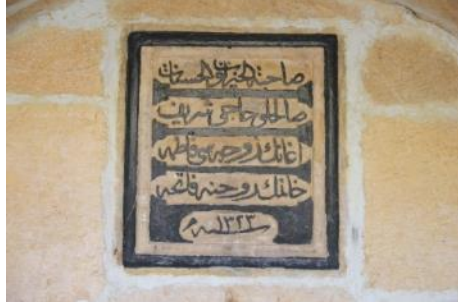 صاحبة الخيرات والحسنات
صالحلي حاجي شريف
اغانك زوجه سي فاطمه
خانمك روحنه فاتحه
سنه ١٣٢٣